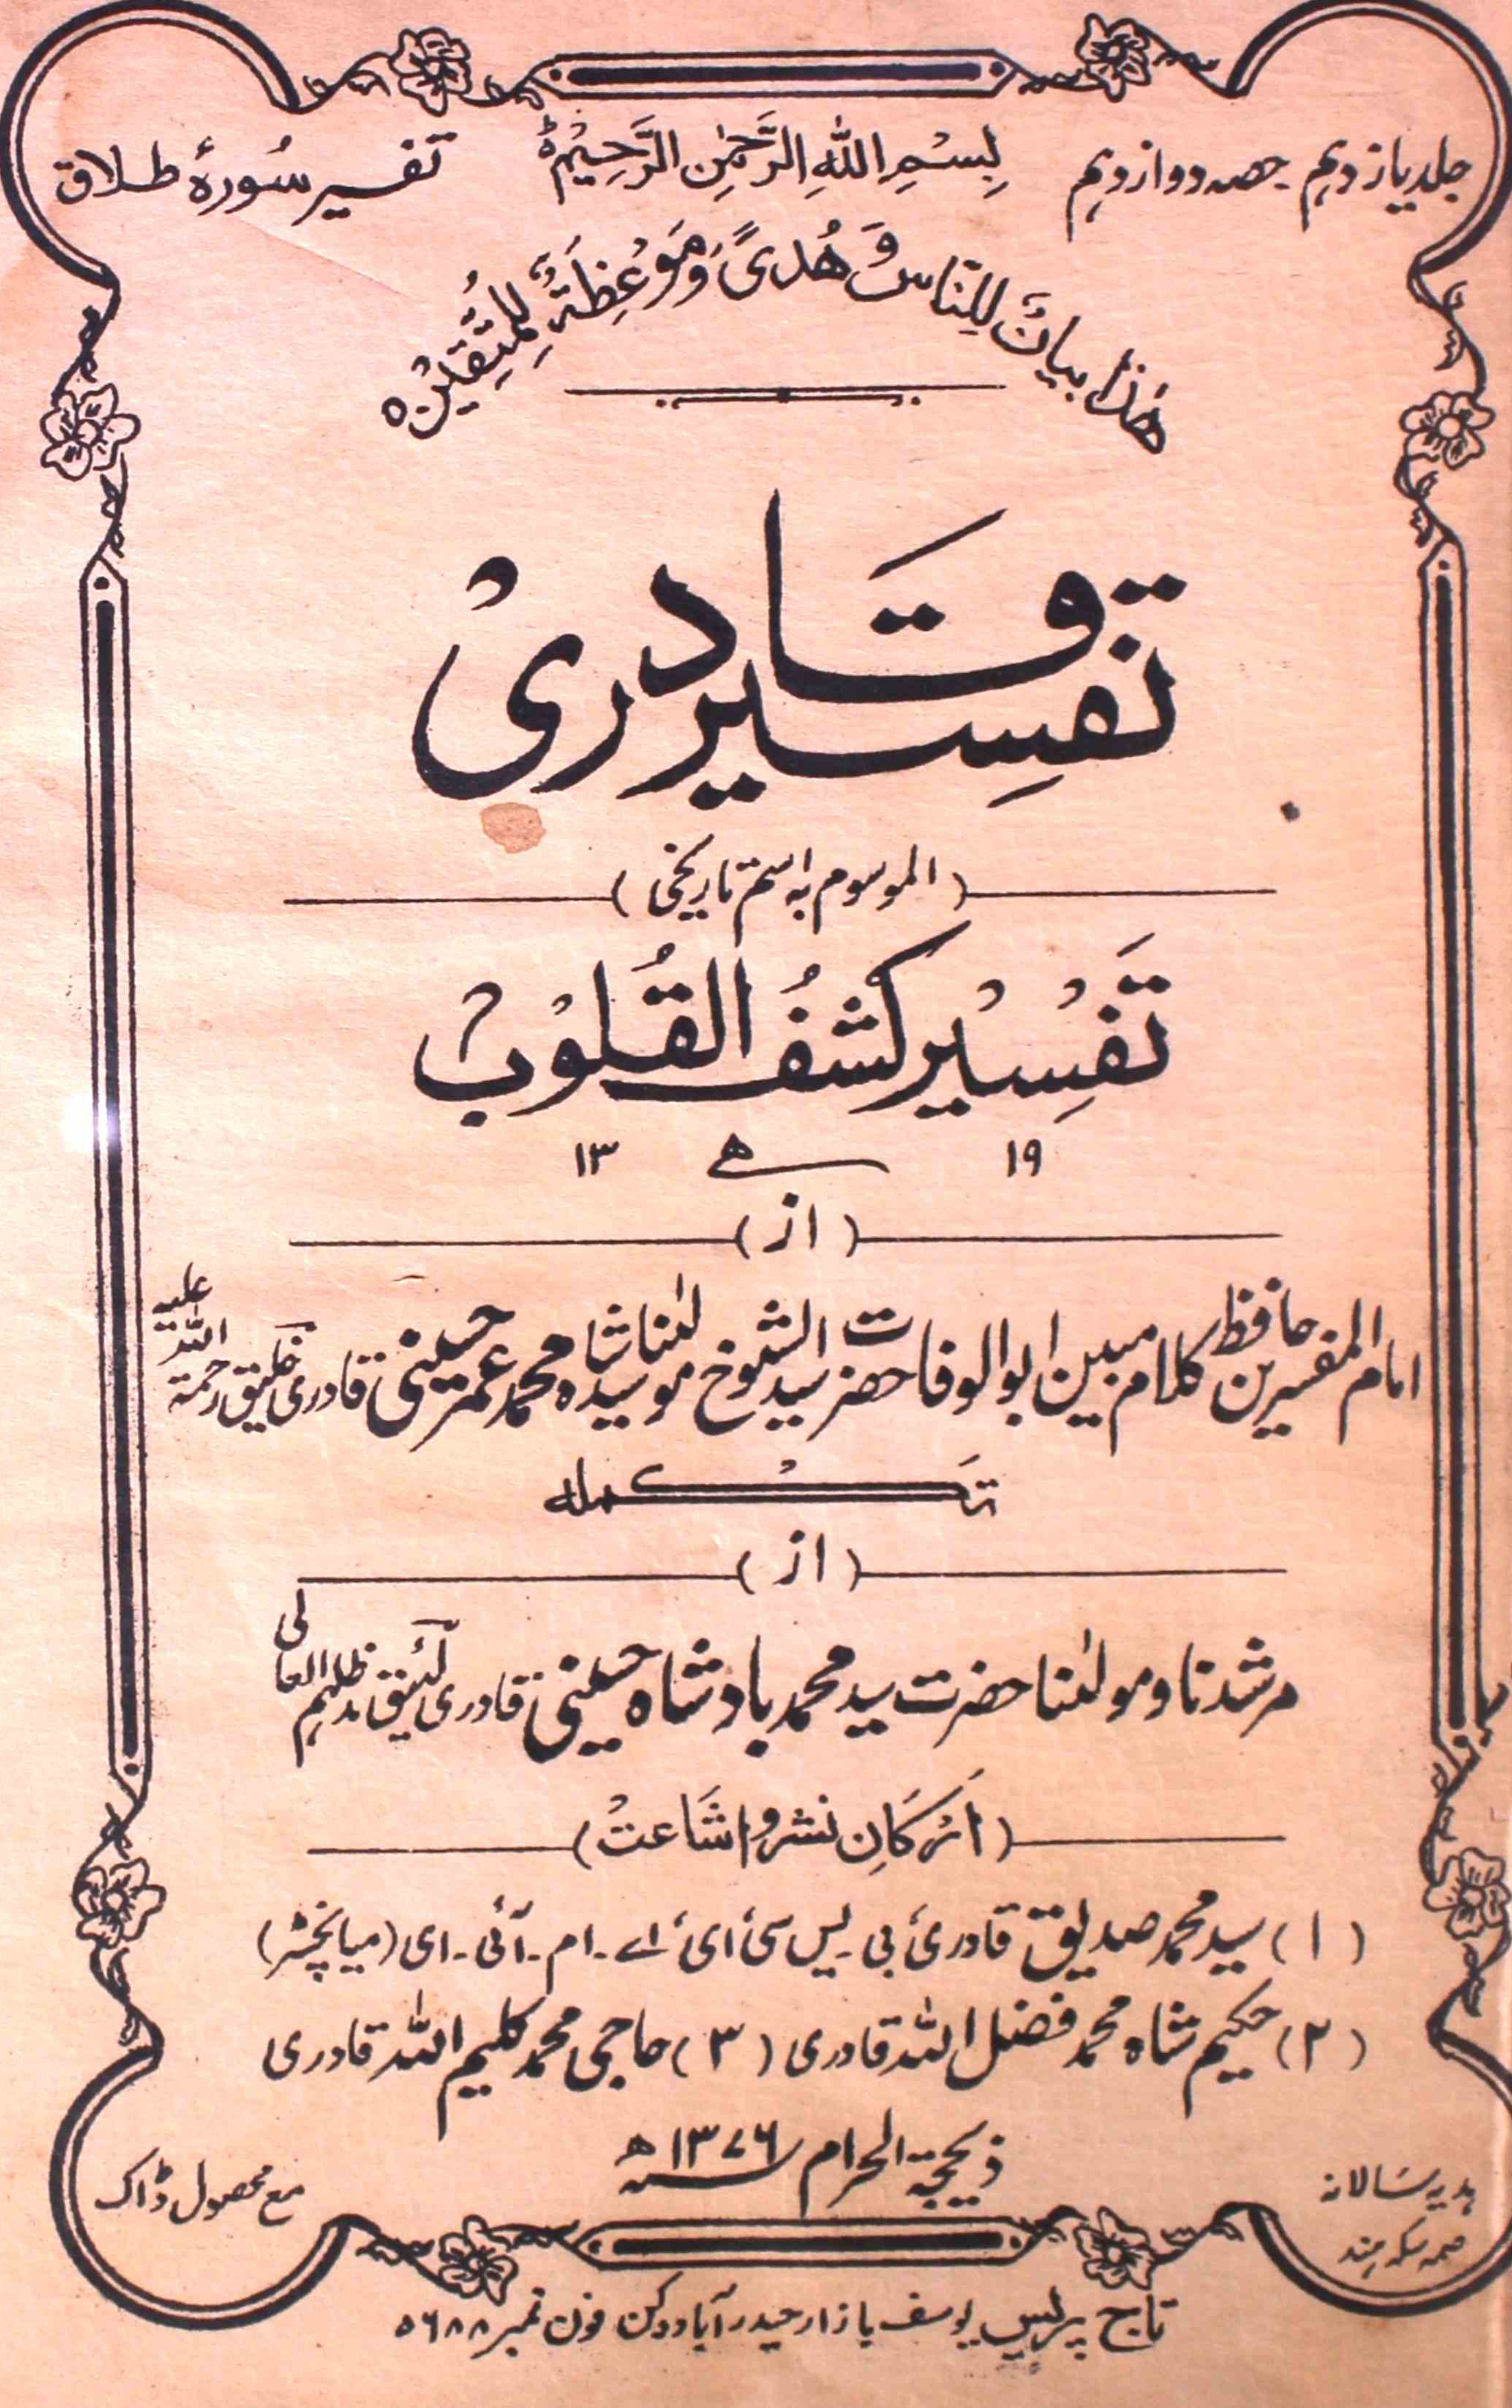 جلد یازدہم حصہ دوازدہم
بِسْمِ اللّٰهِ الرَّحْمٰنِ الرَّحِيْمِ
تفسیر سُورۂ طلاق
هٰذَا بَيَانٌ لِلنَّاسِ وَهُدًى وَمَوْعِظَةٌ لِلْمُتَّقِيْنَ
تفسِیر قادری
(الموسوم بہ اسم تاریخی)
تَفْسِیْر کشفُ القُلُوْبْ
۱۹ ھ ۱۳
(از)
امام المفسرین حافظ کلام مبین ابوالوفا حضرت سید الشیوخ مولٰنا سید شاہ محمد عمر حسینی قادری خلیق رحمۃ اللہ علیہ
تکملہ
(از)
مرشدنا و مولٰنا حضرت سید محمد بادشاہ حسینی قادری لئیق مدظلہم العالی
(اَرکَانِ نشر و اشَاعتْ)
(۱) سید محمد صدیق قادری بی۔یس سی ای اے۔ام۔آئی۔ای (میانچسٹر)
(۲) حکیم شاہ محمد فضل اللہ قادری (۳) حاجی محمد کلیم اللہ قادری
ذیحجۃ الحرام سنہ ۱۳۷۶ ھ
ہدیہ سَالانہ
سکہ ہند
مع محصول ڈاک
تاج پریس یوسف بازار حیدرآباد دکن فون نمبر ۵۶۸۸